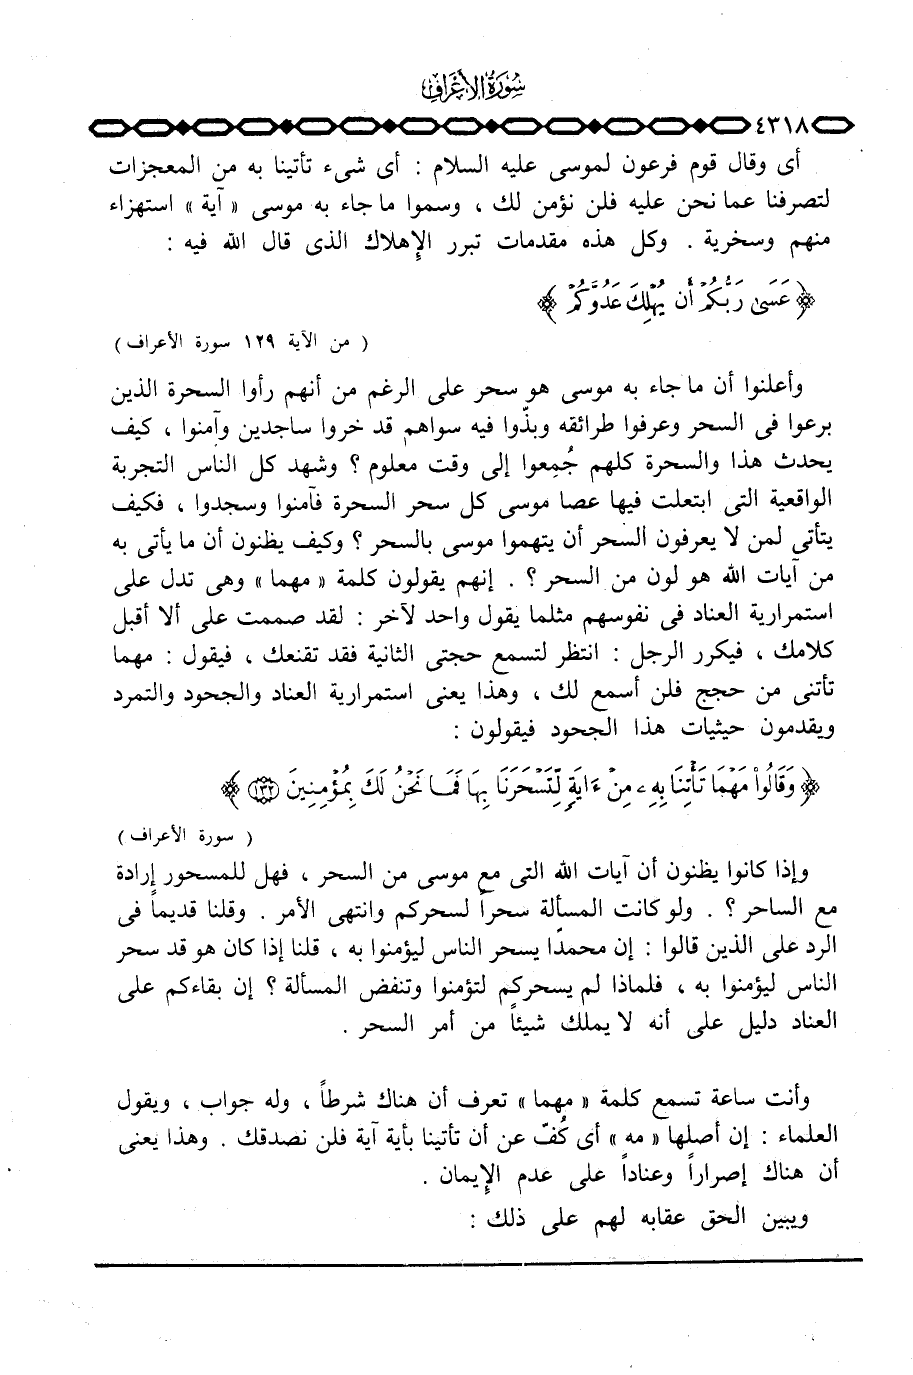 سُورَةُ الأَعْرَافِ
٤٣١٨
أى وقال قوم فرعون لموسى عليه السلام : أى شىء تأتينا به من المعجزات
لتصرفنا عما نحن عليه فلن نؤمن لك ، وسموا ما جاء به موسى « آية » استهزاء
منهم وسخرية . وكل هذه مقدمات تبرر الإهلاك الذى قال الله فيه :
﴿ عَسَىٰ رَبُّكُمْ أَن يُهْلِكَ عَدُوَّكُمْ ﴾
( من الآية ١٢٩ سورة الأعراف )
وأعلنوا أن ما جاء به موسى هو سحر على الرغم من أنهم رأوا السحرة الذين
برعوا فى السحر وعرفوا طرائقه وبذّوا فيه سواهم قد خروا ساجدين وآمنوا ، كيف
يحدث هذا والسحرة كلهم جُمِعوا إلى وقت معلوم ؟ وشهد كل الناس التجربة
الواقعية التى ابتعلت فيها عصا موسى كل سحر السحرة فآمنوا وسجدوا ، فكيف
يتأتى لمن لا يعرفون السحر أن يتهموا موسى بالسحر ؟ وكيف يظنون أن ما يأتى به
من آيات الله هو لون من السحر ؟ . إنهم يقولون كلمة « مهما » وهى تدل على
استمرارية العناد فى نفوسهم مثلما يقول واحد لآخر : لقد صممت على ألا أقبل
كلامك ، فيكرر الرجل : انتظر لتسمع حجتى الثانية فقد تقنعك ، فيقول : مهما
تأتنى من حجج فلن أسمع لك ، وهذا يعنى استمرارية العناد والجحود والتمرد
ويقدمون حيثيات هذا الجحود فيقولون :
﴿ وَقَالُوا۟ مَهْمَا تَأْتِنَا بِهِۦ مِنْ ءَايَةٍ لِّتَسْحَرَنَا بِهَا فَمَا نَحْنُ لَكَ بِمُؤْمِنِينَ ١٣٢ ﴾
( سورة الأعراف )
وإذا كانوا يظنون أن آيات الله التى مع موسى من السحر ، فهل للمسحور إرادة
مع الساحر ؟ . ولو كانت المسألة سحراً لسحركم وانتهى الأمر . وقلنا قديماً فى
الرد على الذين قالوا : إن محمدًا يسحر الناس ليؤمنوا به ، قلنا إذا كان هو قد سحر
الناس ليؤمنوا به ، فلماذا لم يسحركم لتؤمنوا وتنفض المسألة ؟ إن بقاءكم على
العناد دليل على أنه لا يملك شيئاً من أمر السحر .
وأنت ساعة تسمع كلمة « مهما » تعرف أن هناك شرطاً ، وله جواب ، ويقول
العلماء : إن أصلها « مه » أى كُفّ عن أن تأتينا بأية آية فلن نصدقك . وهذا يعنى
أن هناك إصراراً وعناداً على عدم الإيمان .
ويبين الحق عقابه لهم على ذلك :